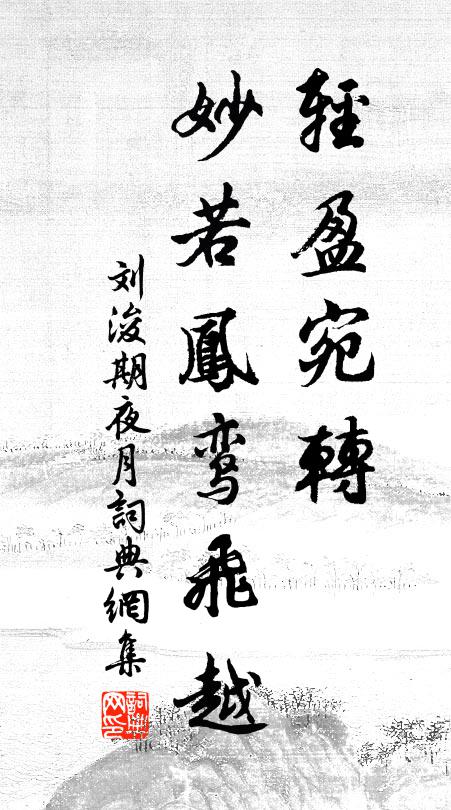 輕盈宛轉
妙若鳳鸾飛越
刘浚期夜月詞典網集